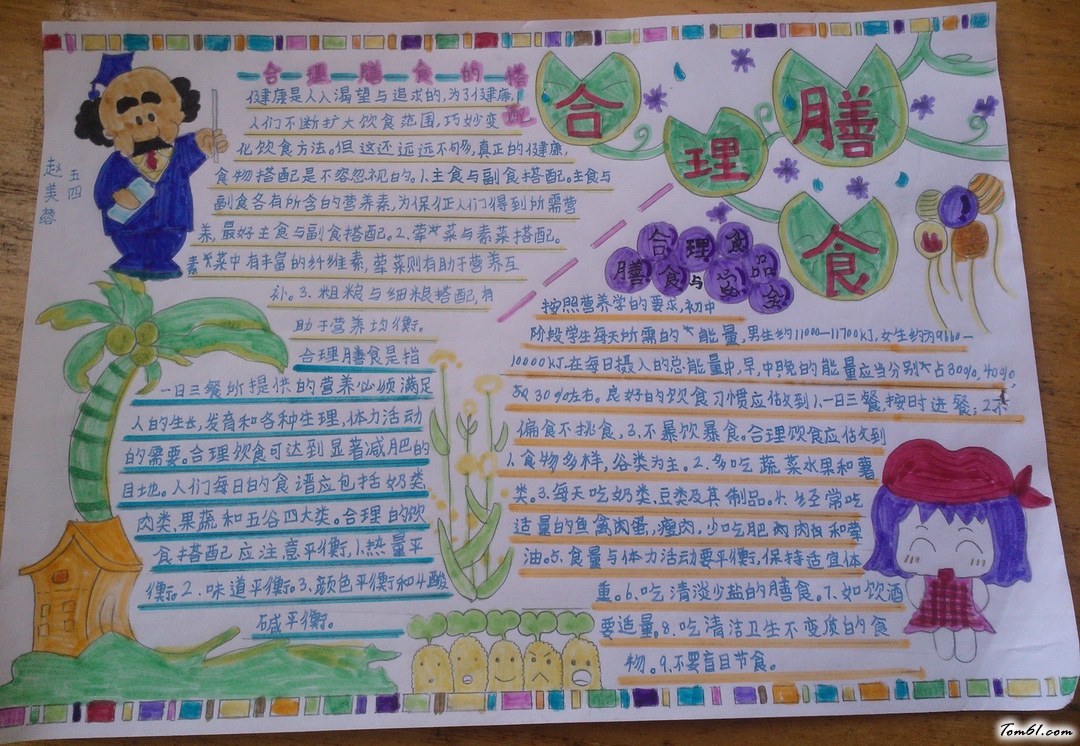 合理膳食的搭
配
健康是人人渴望与追求的,为了健康,
人们不断扩大饮食范围,巧妙变
化饮食方法。但这还远远不够,真正的健康,
食物搭配是不容忽视的。1.主食与副食搭配。主食与
副食各有所含的营养素,为保证人们得到所需营
养,最好主食与副食搭配。2.荤菜与素菜搭配。
素菜中有丰富的纤维素,荤菜则有助于营养互
补。3.粗粮与细粮搭配,有
助于营养均衡。
五四
赵美蓉
合理膳食是指
一日三餐所提供的营养必须满足
人的生长,发育和各种生理,体力活动
的需要。合理饮食可达到显著减肥的
目地。人们每日的食谱应包括奶类
肉类、果蔬和五谷四大类。合理的饮
食搭配应注意平衡,1.热量平
衡。2.味道平衡。3.颜色平衡和4.酸
碱平衡。
合理膳食
合理
膳食与
品
全
按照营养学的要求,初中
阶段学生每天所需的能量,男生约11000—11700kJ,女生约为9660—
10000kJ.在每日摄入的总能量中,早,中,晚的能量应当分别占30%,40%,
及30%左右。良好的饮食习惯应做到1.一日三餐,按时进餐;2不
偏食不挑食,3.不暴饮暴食。合理饮食应做到
1.食物多样,谷类为主。2.多吃蔬菜水果和薯
类。3.每天吃奶类、豆类及其制品。4.经常吃
适量的鱼禽肉蛋,瘦肉,少吃肥肉肉和荤
油。5.食量与体力活动要平衡,保持适宜体
重。6.吃清淡少盐的膳食。7.如饮酒
要适量。8.吃清洁卫生不变质的食
物。9.不要盲目节食。
Tom61.com